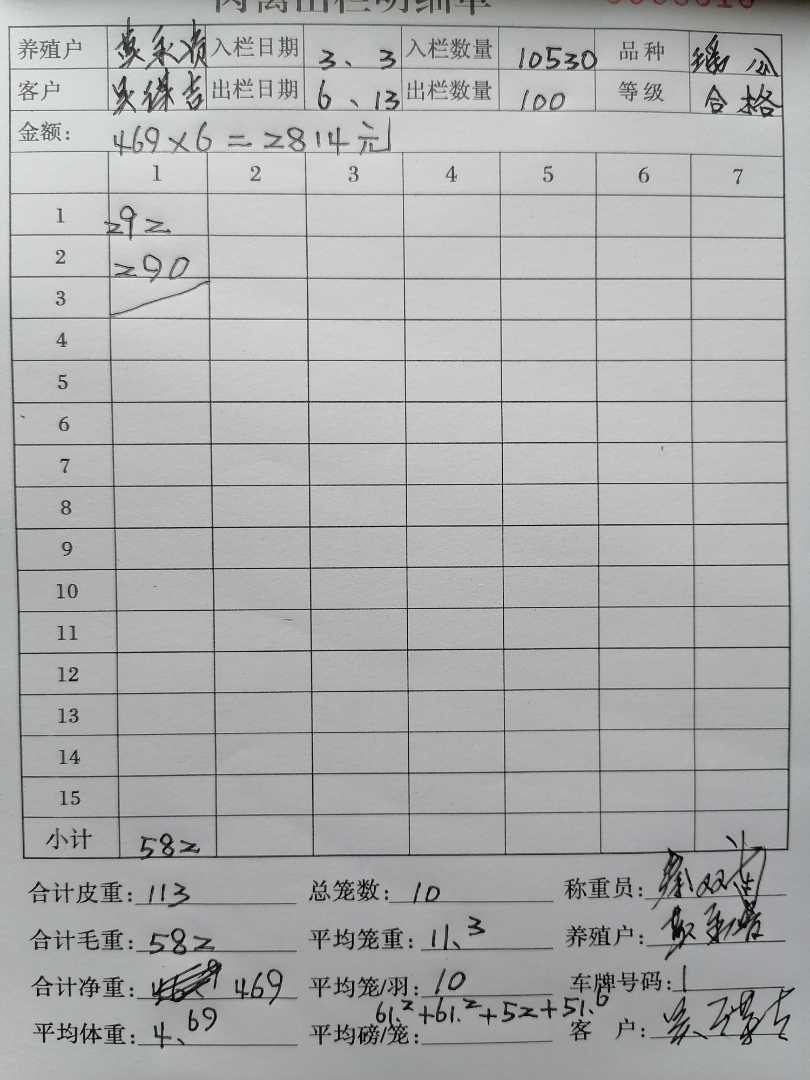 肉禽出栏明细单
养殖户 入栏日期 3、3 入栏数量 10530 品种
客户 出栏日期 6、13 出栏数量 100 等级 合格
金额: 469×6=2814元
1 2 3 4 5 6 7
1 292
2 290
3
4
5
6
7
8
9
10
11
12
13
14
15
小计 582
合计皮重: 113 总笼数: 10 称重员:
合计毛重: 582 平均笼重: 11、3 养殖户:
合计净重: 469 平均笼/羽: 10 车牌号码:
61.2+61.2+52+51.6
平均体重: 4、69 平均磅/笼: 客户: